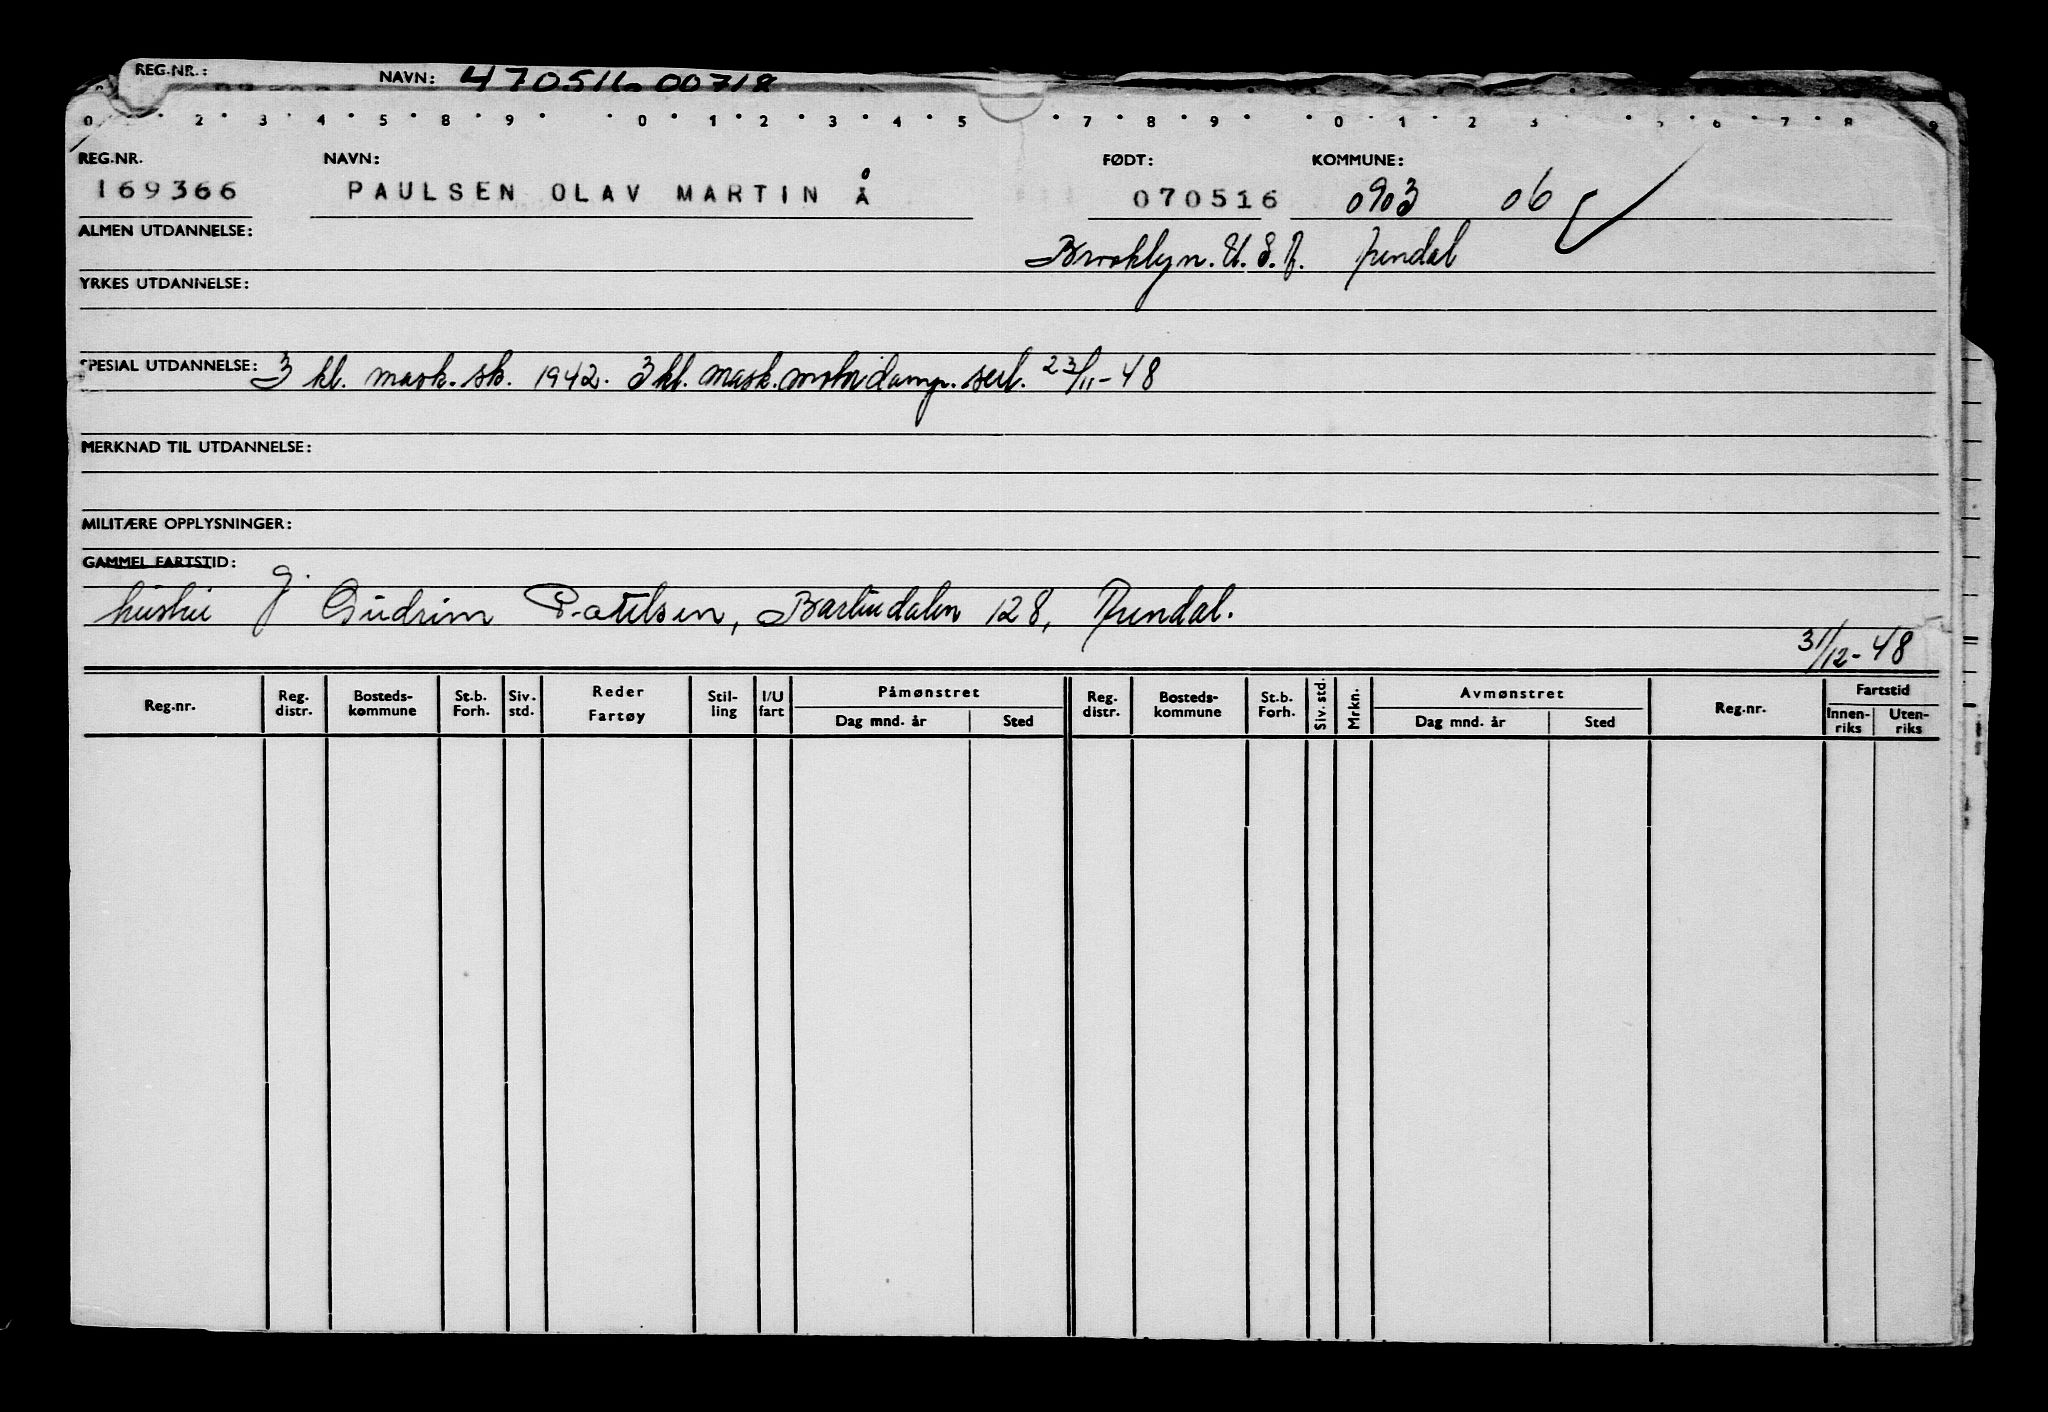 REG.NR.: NAVN: 470516 00718
0 2 3 4 5 8 9 0 1 2 3 4 5 7 8 9 0 1 2 3 5 6 7 8 9
REG.NR. NAVN: FØDT: KOMMUNE:
169366 PAULSEN OLAV MARTIN Å 070516 0903 06
ALMEN UTDANNELSE: Brooklyn. U.S.A. Arendal
YRKES UTDANNELSE:
SPESIAL UTDANNELSE: 3 kl. mask. sk. 1942. 3 kl. mask. motor damp. sert. 23/11-48
MERKNAD TIL UTDANNELSE:
MILITÆRE OPPLYSNINGER:
GAMMEL FARTSTID:
hustru G. Gudrun Paulsen, Barbudalen 128, Arendal.
31/12-48
Reg.nr. Reg. distr. Bosteds-kommune St.b. Forh. Siv. std. Reder Fartøy Stil-ling I/U fart Påmønstret Dag mnd. år Sted Reg. distr. Bosteds-kommune St.b. Forh. Siv. std. Mrkn. Avmønstret Dag mnd. år Sted Reg.nr. Fartstid Innen-riks Uten-riks